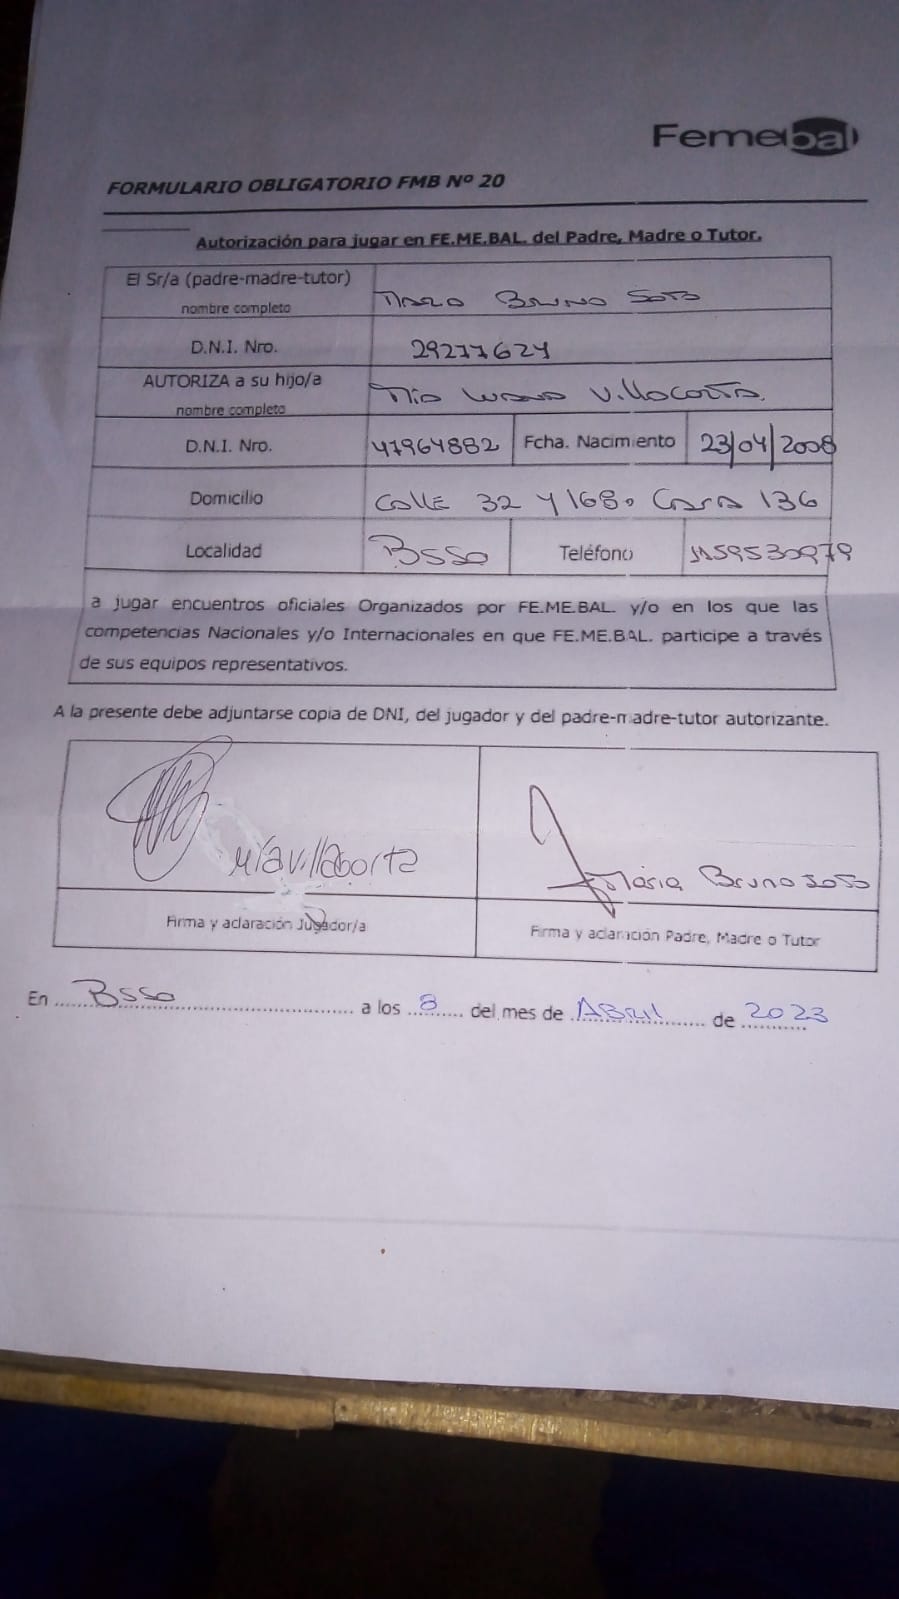 Femebal
FORMULARIO OBLIGATORIO FMB Nº 20
Autorización para jugar en FE.ME.BAL. del Padre, Madre o Tutor.
El Sr/a (padre-madre-tutor)
nombre completo
Bruno Soto
D.N.I. Nro.
29277624
AUTORIZA a su hijo/a
nombre completo
Mia Luana Villacorta.
D.N.I. Nro.
47964882
Fcha. Nacimiento
23/04/2008
Domicilio
Calle 32 y 168. Casa 136
Localidad
Bsso
Teléfono
1159530979
a jugar encuentros oficiales Organizados por FE.ME.BAL. y/o en los que las
competencias Nacionales y/o Internacionales en que FE.ME.BAL. participe a través
de sus equipos representativos.
A la presente debe adjuntarse copia de DNI, del jugador y del padre-madre-tutor autorizante.
Bruno Soto
Firma y aclaración Jugador/a
Firma y aclaración Padre, Madre o Tutor
En Bsso a los 8 del mes de Abril de 2023